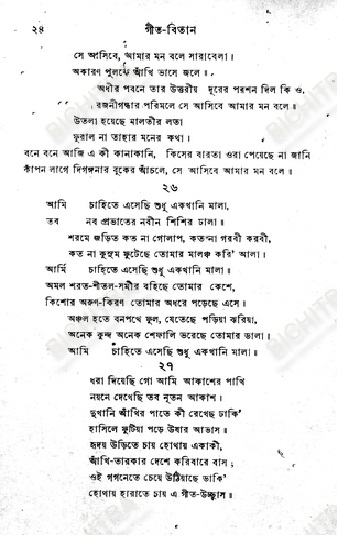 ২৪ গীত-বিতান
সে আসিবে, আমার মন বলে সারাবেলা।
অকারণ পুলকে আঁখি ভাসে জলে॥
অধীর পবনে তার উত্তরীয় দূরের পরশন দিল কি ও,
রজনীগন্ধার পরিমলে সে আসিবে আমার মন বলে॥
উতলা হয়েছে মালতীর লতা
ফুরাল না তাহার মনের কথা।
বনে বনে আজি এ কী কানাকানি, কিসের বারতা ওরা পেয়েছে না জানি
কাঁপন লাগে দিগঙ্গনার বুকের আঁচলে, সে আসিবে আমার মন বলে॥
২৬
আমি চাহিতে এসেছি শুধু একখানি মালা,
তব নব প্রভাতের নবীন শিশির ঢালা।
শরমে জড়িত কত না গোলাপ, কত না গরবী করবী,
কত না কুসুম ফুটেছে তোমার মালঞ্চ করি' আলা।
আমি চাহিতে এসেছি শুধু একখানি মালা।
অমল শরত-শীতল-সমীর বহিছে তোমার কেশে,
কিশোর অরুণ-কিরণ তোমার অধরে পড়েছে এসে।
অঞ্চল হতে বনপথে ফুল, যেতেছে পড়িয়া ঝরিয়া,
অনেক কুন্দ অনেক শেফালি ভরেছে তোমার ডালা।
আমি চাহিতে এসেছি শুধু একখানি মালা॥
২৭
ধরা দিয়েছি গো আমি আকাশের পাখি
নয়নে দেখেছি তব নূতন আকাশ।
দুখানি আঁখির পাতে কী রেখেছ ঢাকি'
হাসিলে ফুটিয়া পড়ে উষার আভাস।
হৃদয় উড়িতে চায় হোথায় একাকী,
আঁখি-তারকার দেশে করিবারে বাস;
ওই গগনেতে চেয়ে উঠিয়াছে ডাকি'
হোথায় হারাতে চায় এ গীত-উচ্ছ্বাস॥